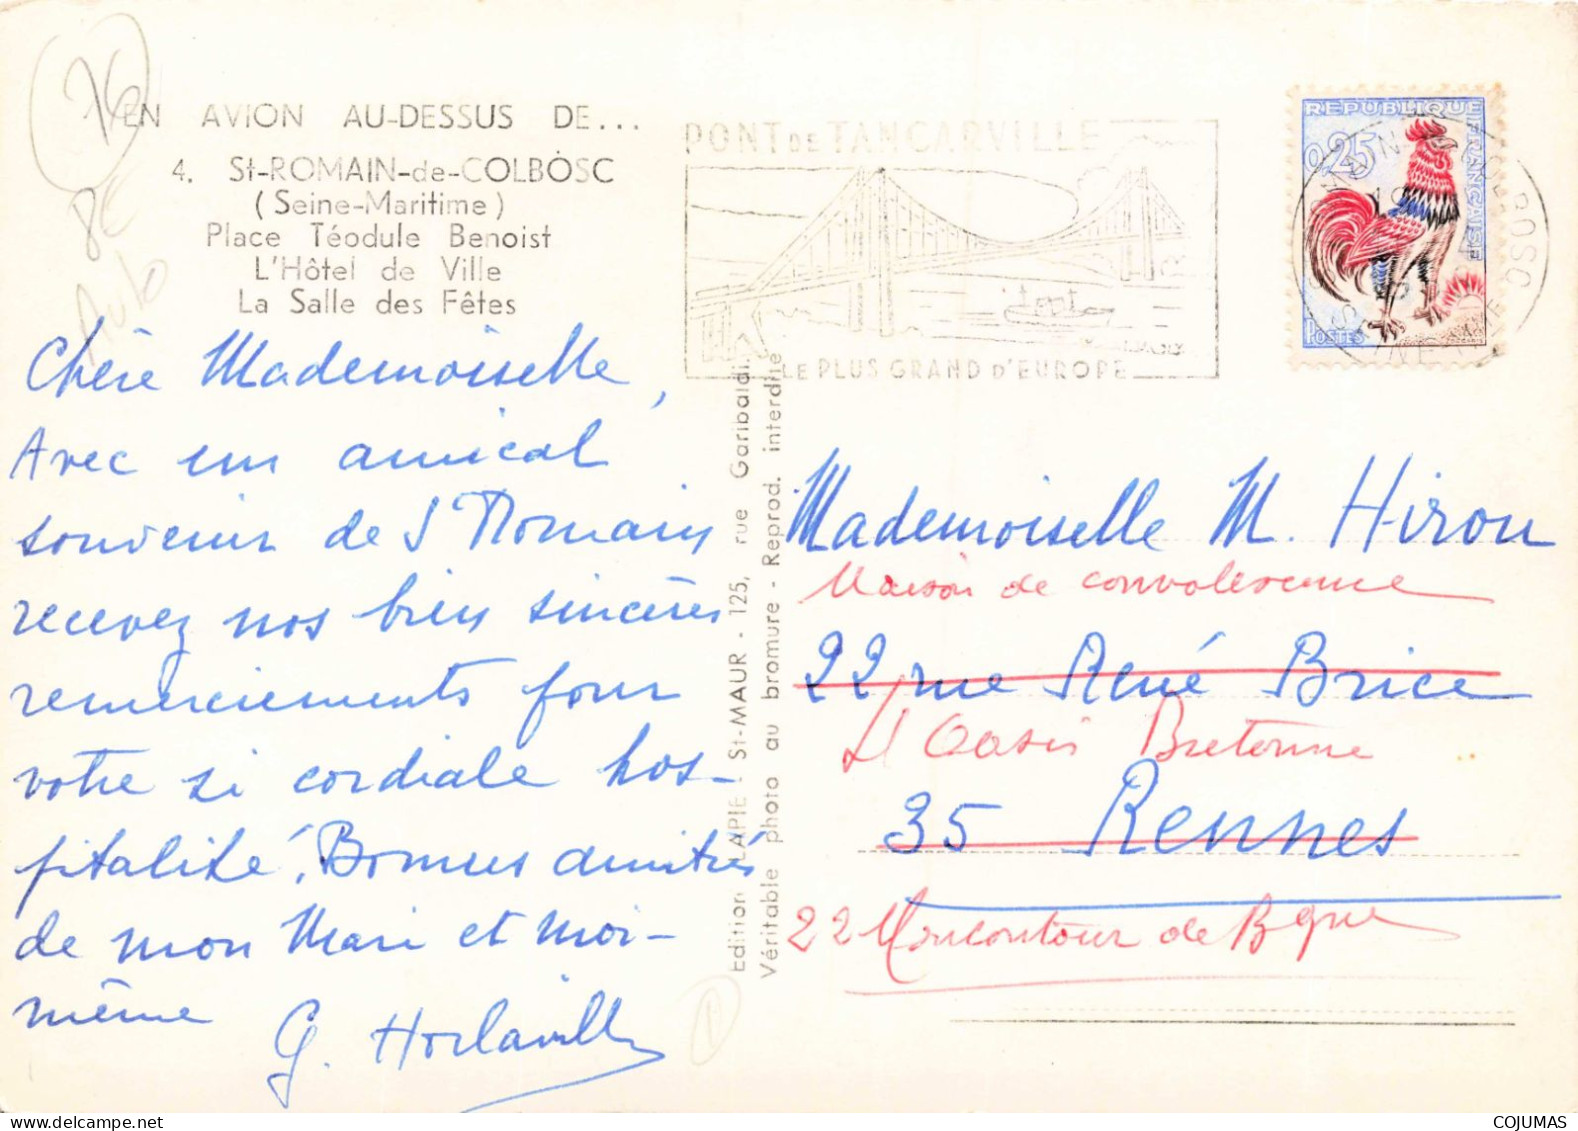 76
8€
Auto
EN AVION AU-DESSUS DE...
4. St-ROMAIN-de-COLBOSC
(Seine-Maritime)
Place Téodule Benoist
L'Hôtel de Ville
La Salle des Fêtes
Chère Mademoiselle,
Avec un amical
souvenir de S Romain
recevez nos bien sincères
remerciements pour
votre si cordiale hos-
pitalité. Bonnes amitiés
de mon Mari et moi-
même
G. Horlaville
Edition LAPIE - St-MAUR - 125, rue Garibaldi.
Véritable photo au bromure - Reprod. interdite
PONT DE TANCARVILLE
LE PLUS GRAND D'EUROPE
REPUBLIQUE FRANÇAISE
0,25
POSTES
Mademoiselle M. Hiron
Maison de convalescence
22 rue René Brice
L'Oasis Bretonne
35 Rennes
22 Moncontour de Bgne
1
COJUMAS